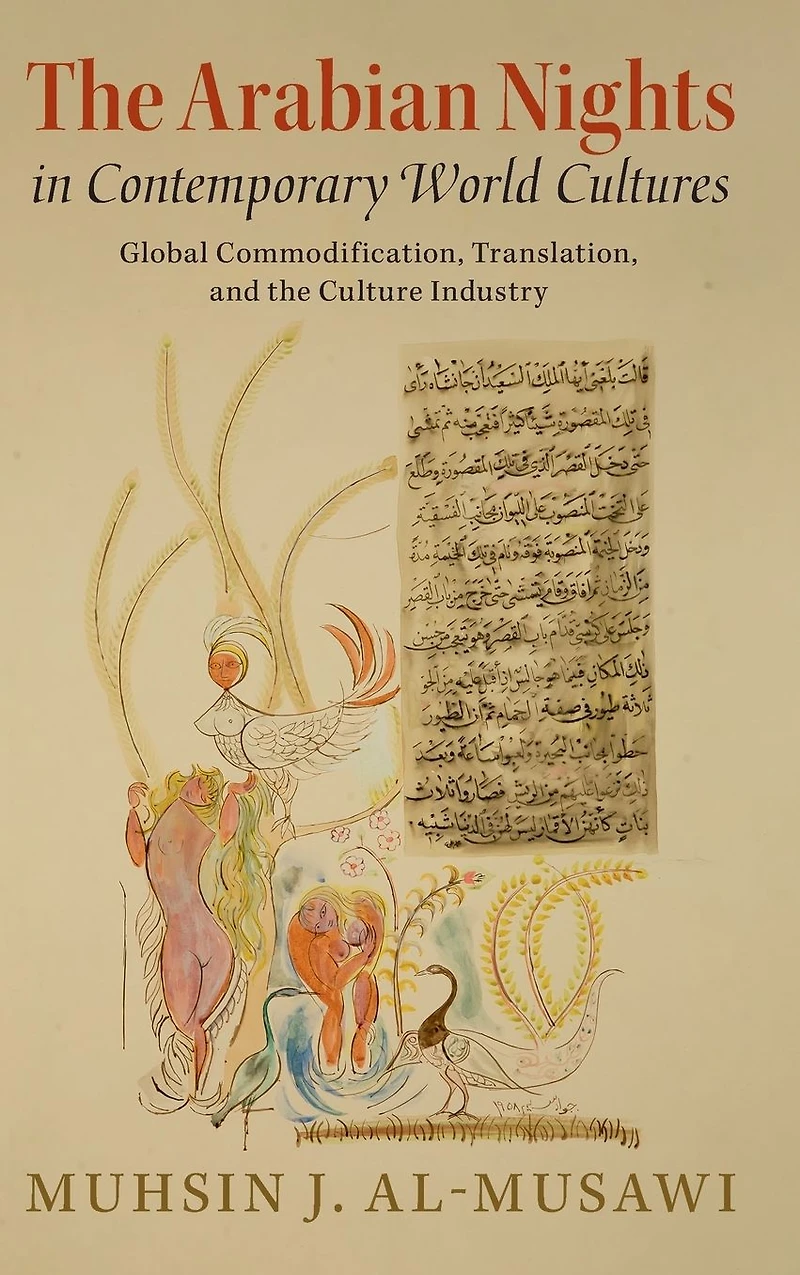 The Arabian Nights
in Contemporary World Cultures
Global Commodification, Translation,
and the Culture Industry
قالت بلغني أيها الملك السعيد أن جانشاه رأى
في تلك المقصورة شيئا كثيرا فتعجب منه ثم تمشى
حتى دخل القصر الذي في تلك المقصورة وطلع
على التخت المنصوب على الليوان بجانب الفسقية
ودخل الخيمة المنصوبة فوقه ونام في تلك الخيمة مدة
من الزمان ثم أفاق وقام يتمشى حتى خرج من باب القصر
وجلس على كرسي قدام باب القصر وهو يتعجب من حسن
ذلك المكان فبينما هو جالس إذ أقبل عليه من الجو
ثلاثة طيور في صفة الحمام ثم أن الطيور
حطوا بجانب البحيرة ولعبوا ساعة وبعد
ذلك نزعوا ما عليهم من الريش فصاروا ثلاث
بنات كأنهن الأقمار ليس لهن في الدنيا شبيه
جواد سليم ١٩٥٨
MUHSIN J. AL-MUSAWI